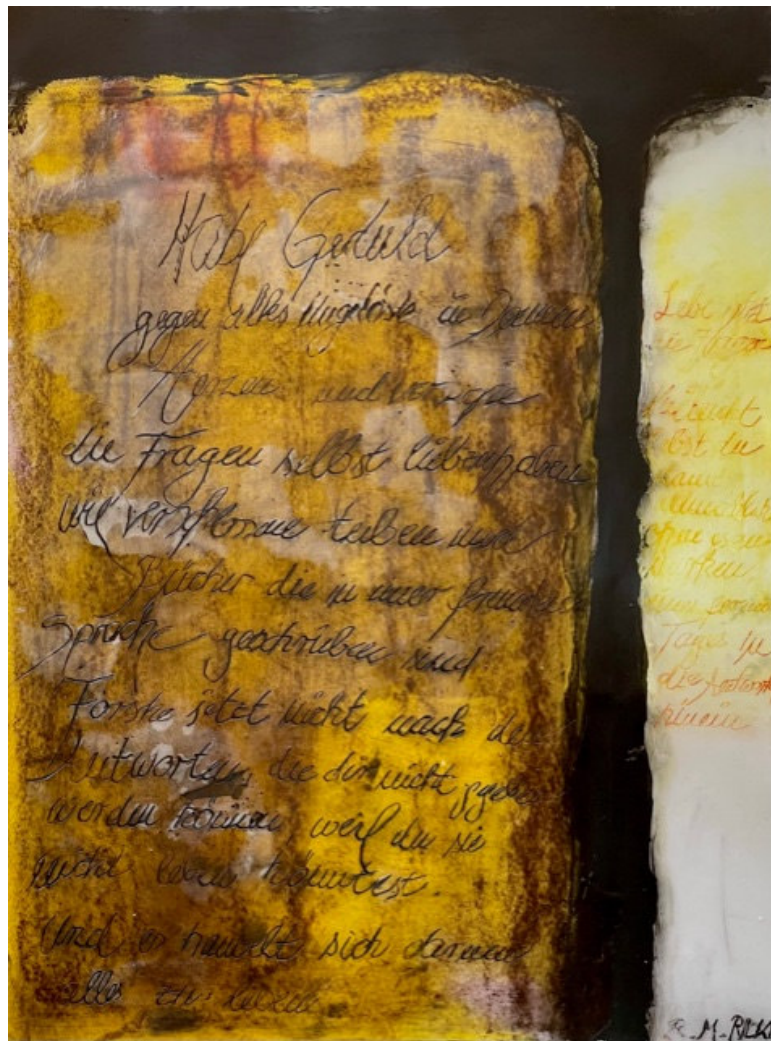 Habe Geduld
gegen alles Ungelöste in Deinem
Herzen und versuche
die Fragen selbst liebenhaben
wie verschlossene
Bücher die in einer fremden
Sprache geschrieben sind
Forsche jetzt nicht nach den
Antworten, die dir nicht gegeben
werden können, weil du sie
nicht leben könntest.
Und es handelt sich darum
alles zu leben
Lebe jetzt
die Fragen
vielleicht
lebst du
dann
allmählich
ohne es zu
merken
eines fernen
Tages in
die Antwort
hinein
R. M. RILKE